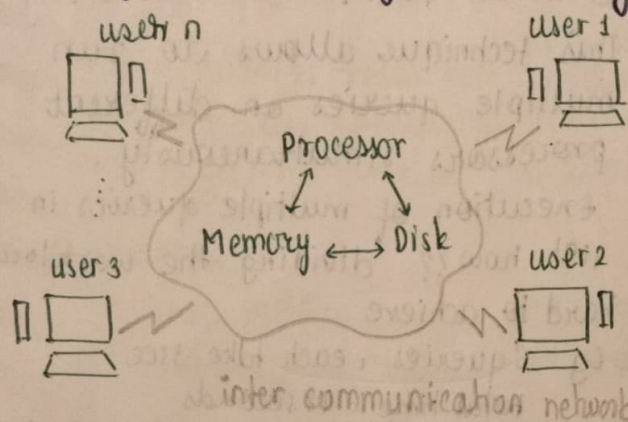 user n
user 1
Processor
Memory
Disk
user 3
user 2
inter communication network